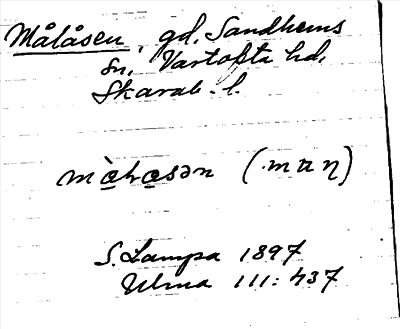 Målåsen, gd. Sandhems
sn, Vartofta hd,
Skarab. l.
S. Lampa 1897
Ulma 111: 437